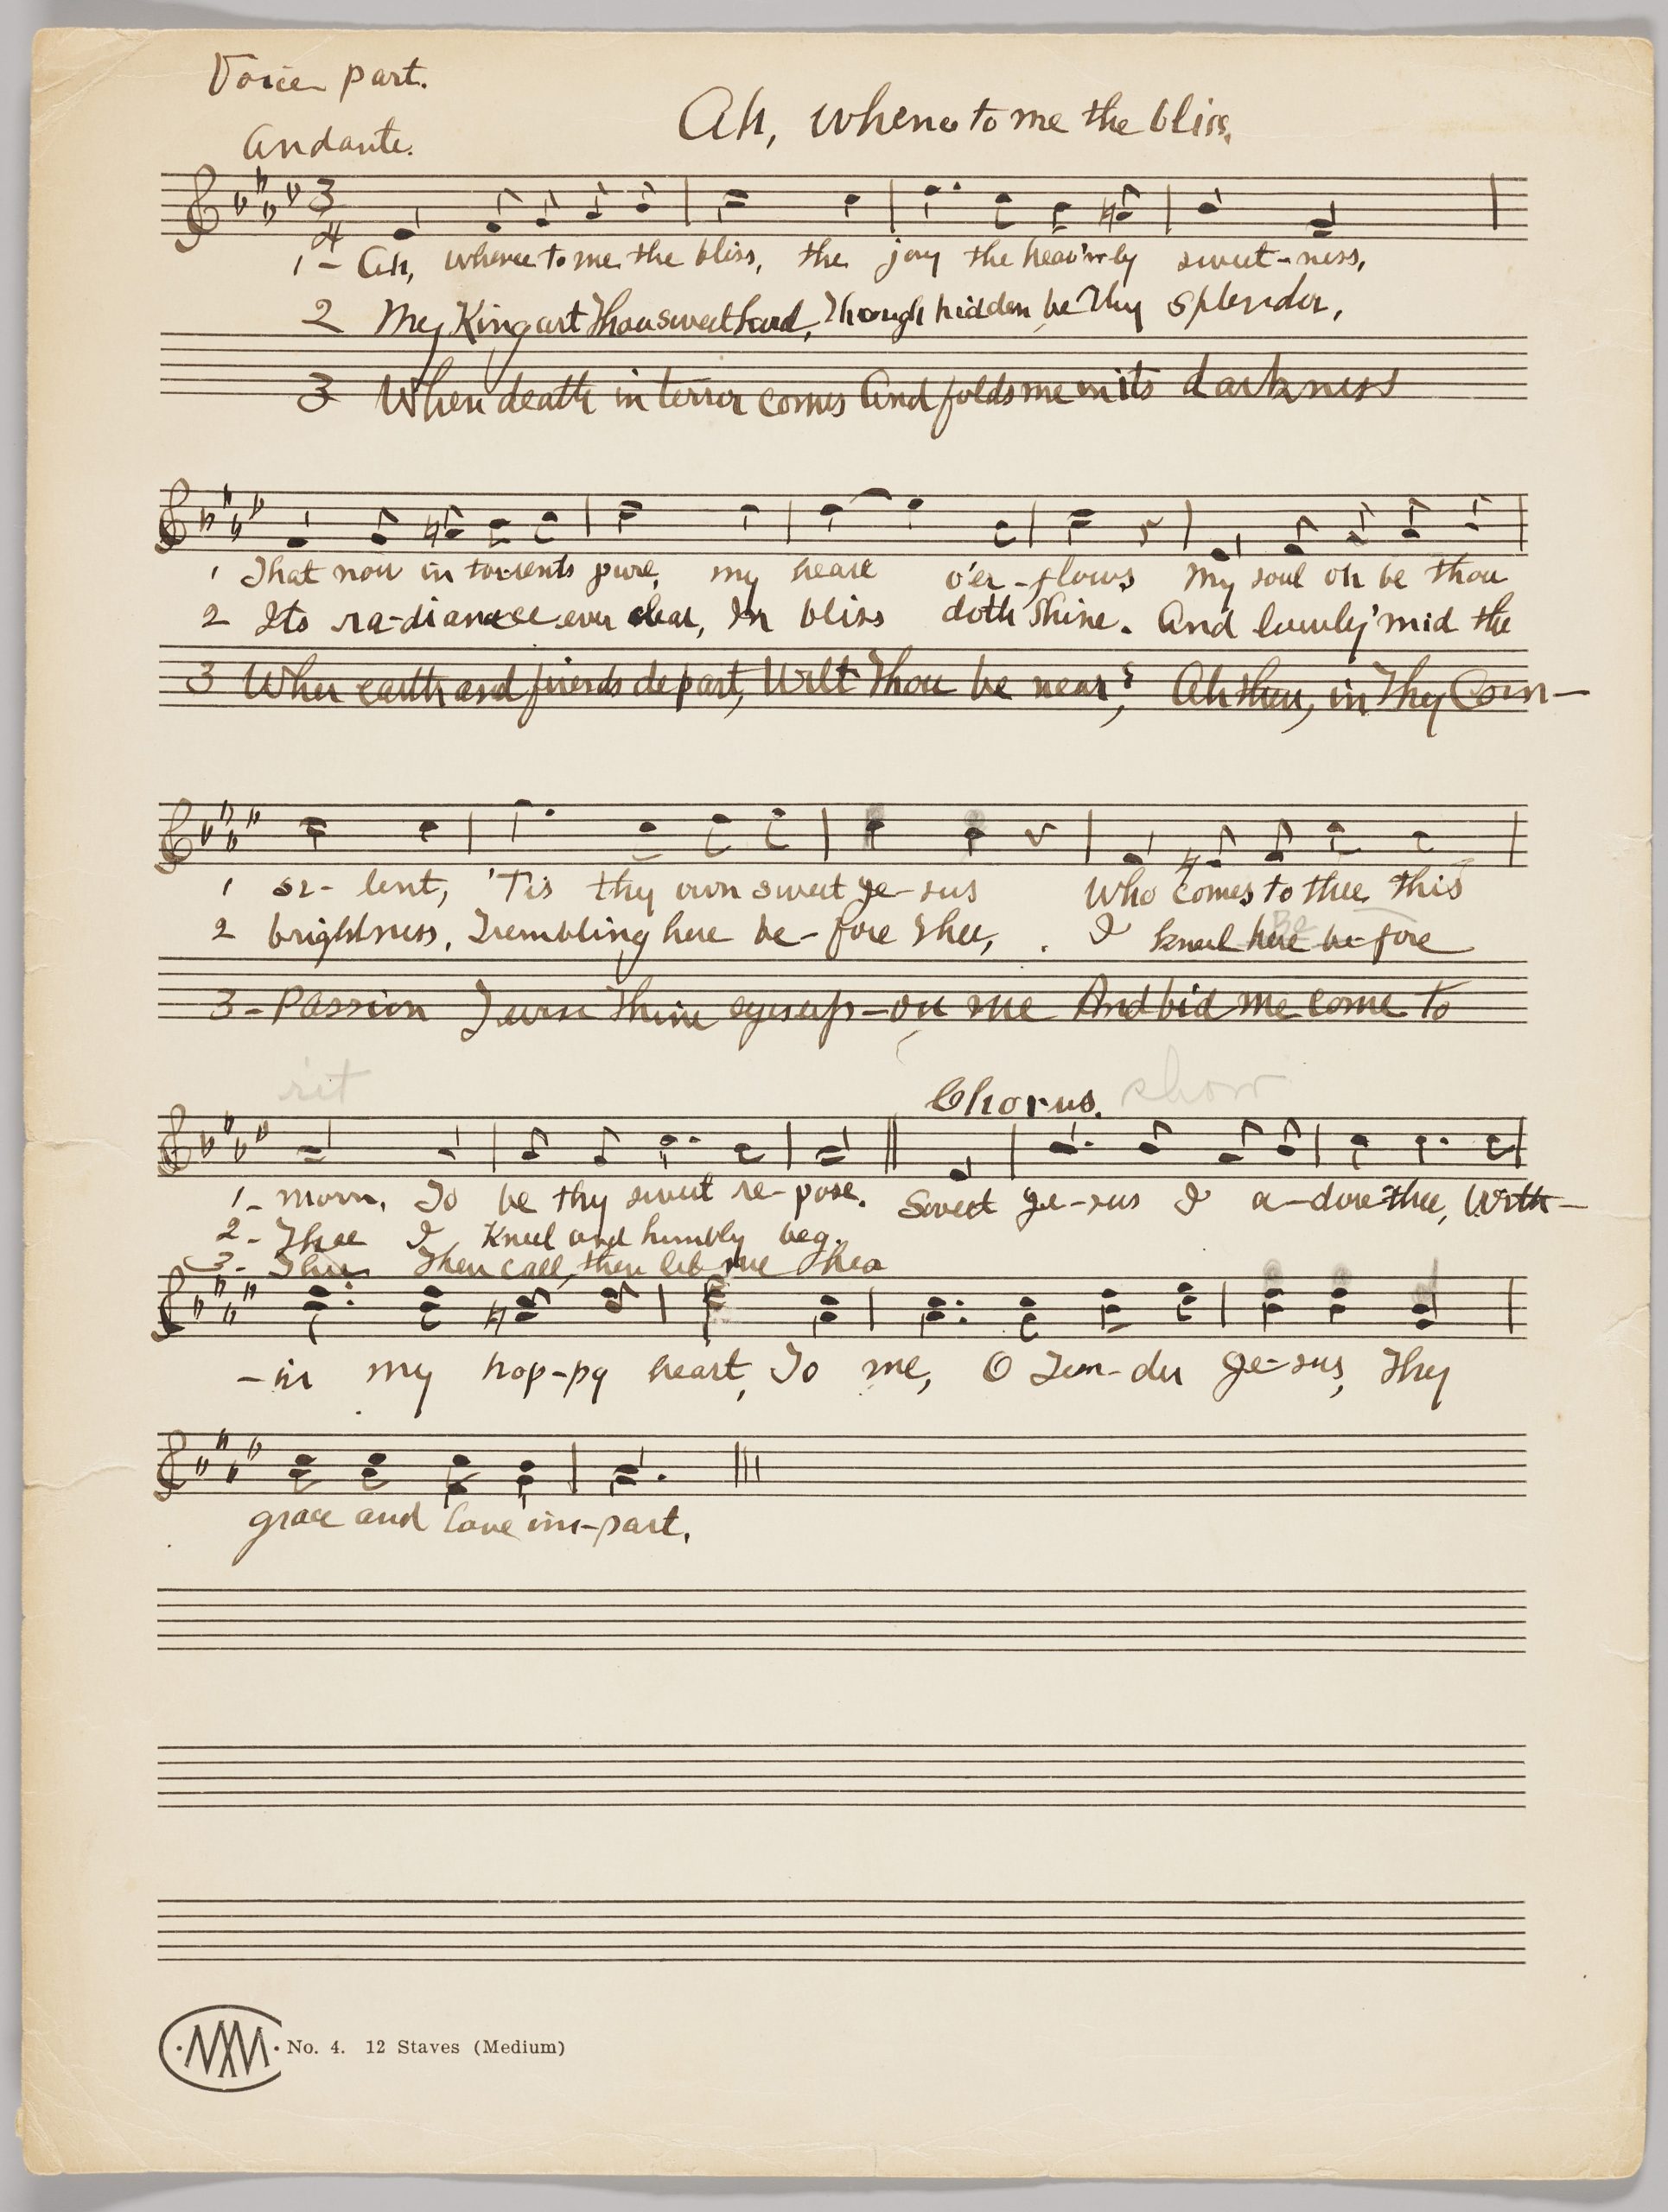 Voice part.
Ah, whence to me the bliss.
Andante.
3
4
1 - Ah, whence to me the bliss, the joy the heav'n-ly sweet-ness,
2 My King art Thou sweet Lord, Though hidden be Thy splendor,
3 When death in terror comes And folds me in its darkness
1 That now in torrents pure, my heart o'er-flows My soul oh be thou
2 Its ra-diance ever clear, In bliss doth shine. And lowly 'mid the
3 When earth and friends depart, Wilt Thou be near? Ah then, in Thy Com-
1 si-lent, 'Tis thy own sweet Je-sus Who comes to thee this
2 brightness, Trembling here be-fore Thee, I kneel here be-fore
3 - Passion Turn Thine eyes up-on me And bid me come to
rit
Chorus. chorus
1 - morn, To be thy sweet re-pose. Sweet Je-sus I a-dore thee, With-
2 - Thee I kneel and humbly beg.
3 - Thee Then call, then let me
-in my hap-py heart, To me, O Ten-der Je-sus, Thy
grace and love im-part.
No. 4. 12 Staves (Medium)